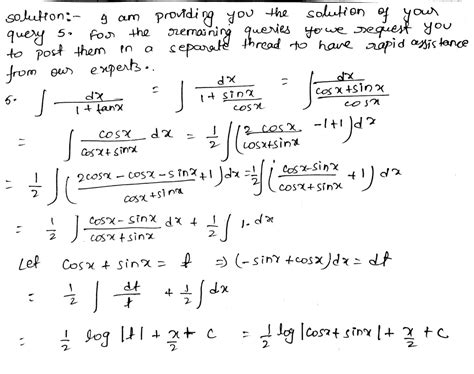 solution:- I am providing you the solution of your
query 5. For the remaining queries you we request you
to post them in a separate thread to have rapid assistance
from our experts..
5. ∫ dx/(1 + tanx) = ∫ dx/(1 + sinx/cosx) = ∫ dx/((cosx+sinx)/cosx)
= ∫ cosx/(cosx+sinx) dx = 1/2 ∫ (2cosx/(cosx+sinx) -1+1) dx
= 1/2 ∫ ((2cosx - cosx - sinx)/(cosx+sinx) +1) dx = 1/2 ∫ ((cosx-sinx)/(cosx+sinx) + 1) dx
= 1/2 ∫ (cosx - sinx)/(cosx + sinx) dx + 1/2 ∫ 1. dx
Let cosx + sinx = t ⇒ (-sinx + cosx) dx = dt
= 1/2 ∫ dt/t + 1/2 ∫ dx
= 1/2 log |t| + x/2 + c = 1/2 log |cosx + sinx| + x/2 + c